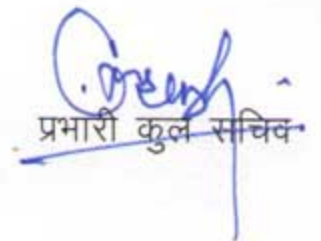 प्रभारी कुल सचिव